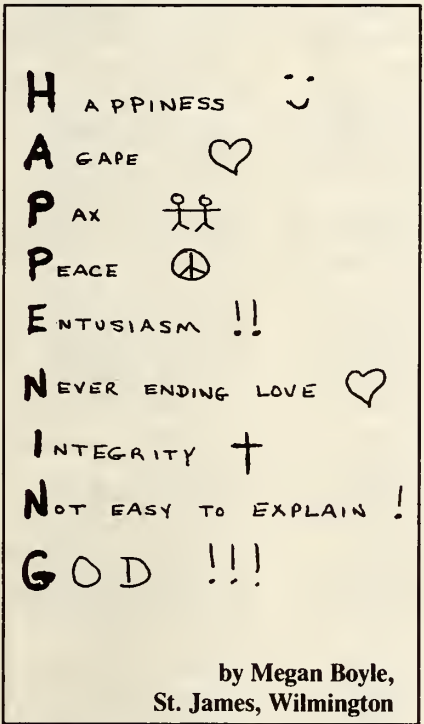 HAPPINESS
AGAPE
PAX
PEACE
ENTUSIASM !!
NEVER ENDING LOVE
INTEGRITY
NOT EASY TO EXPLAIN !
GOD !!!
by Megan Boyle,
St. James, Wilmington